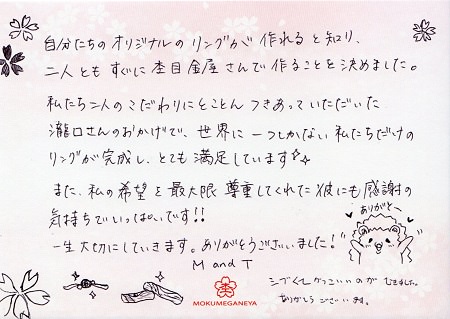 自分たちのオリジナルのリングが作れると知り、
二人ともすぐに杢目金屋さんで作ることを決めました。
私たち二人のこだわりにとことんつきあっていただいた
瀧口さんのおかげで、世界に一つしかない私たちだけの
リングが完成し、とても満足しています
また、私の希望を最大限尊重してくれた彼にも感謝の
気持ちでいっぱいです!!
一生大切にしていきます。ありがとうございました!
M and T
ありがと〜
シブくてかっこいいのができました。
ありがとうございます。
MOKUMEGANEYA